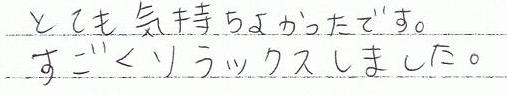 とても気持ちよかったです。
すごくリラックスしました。